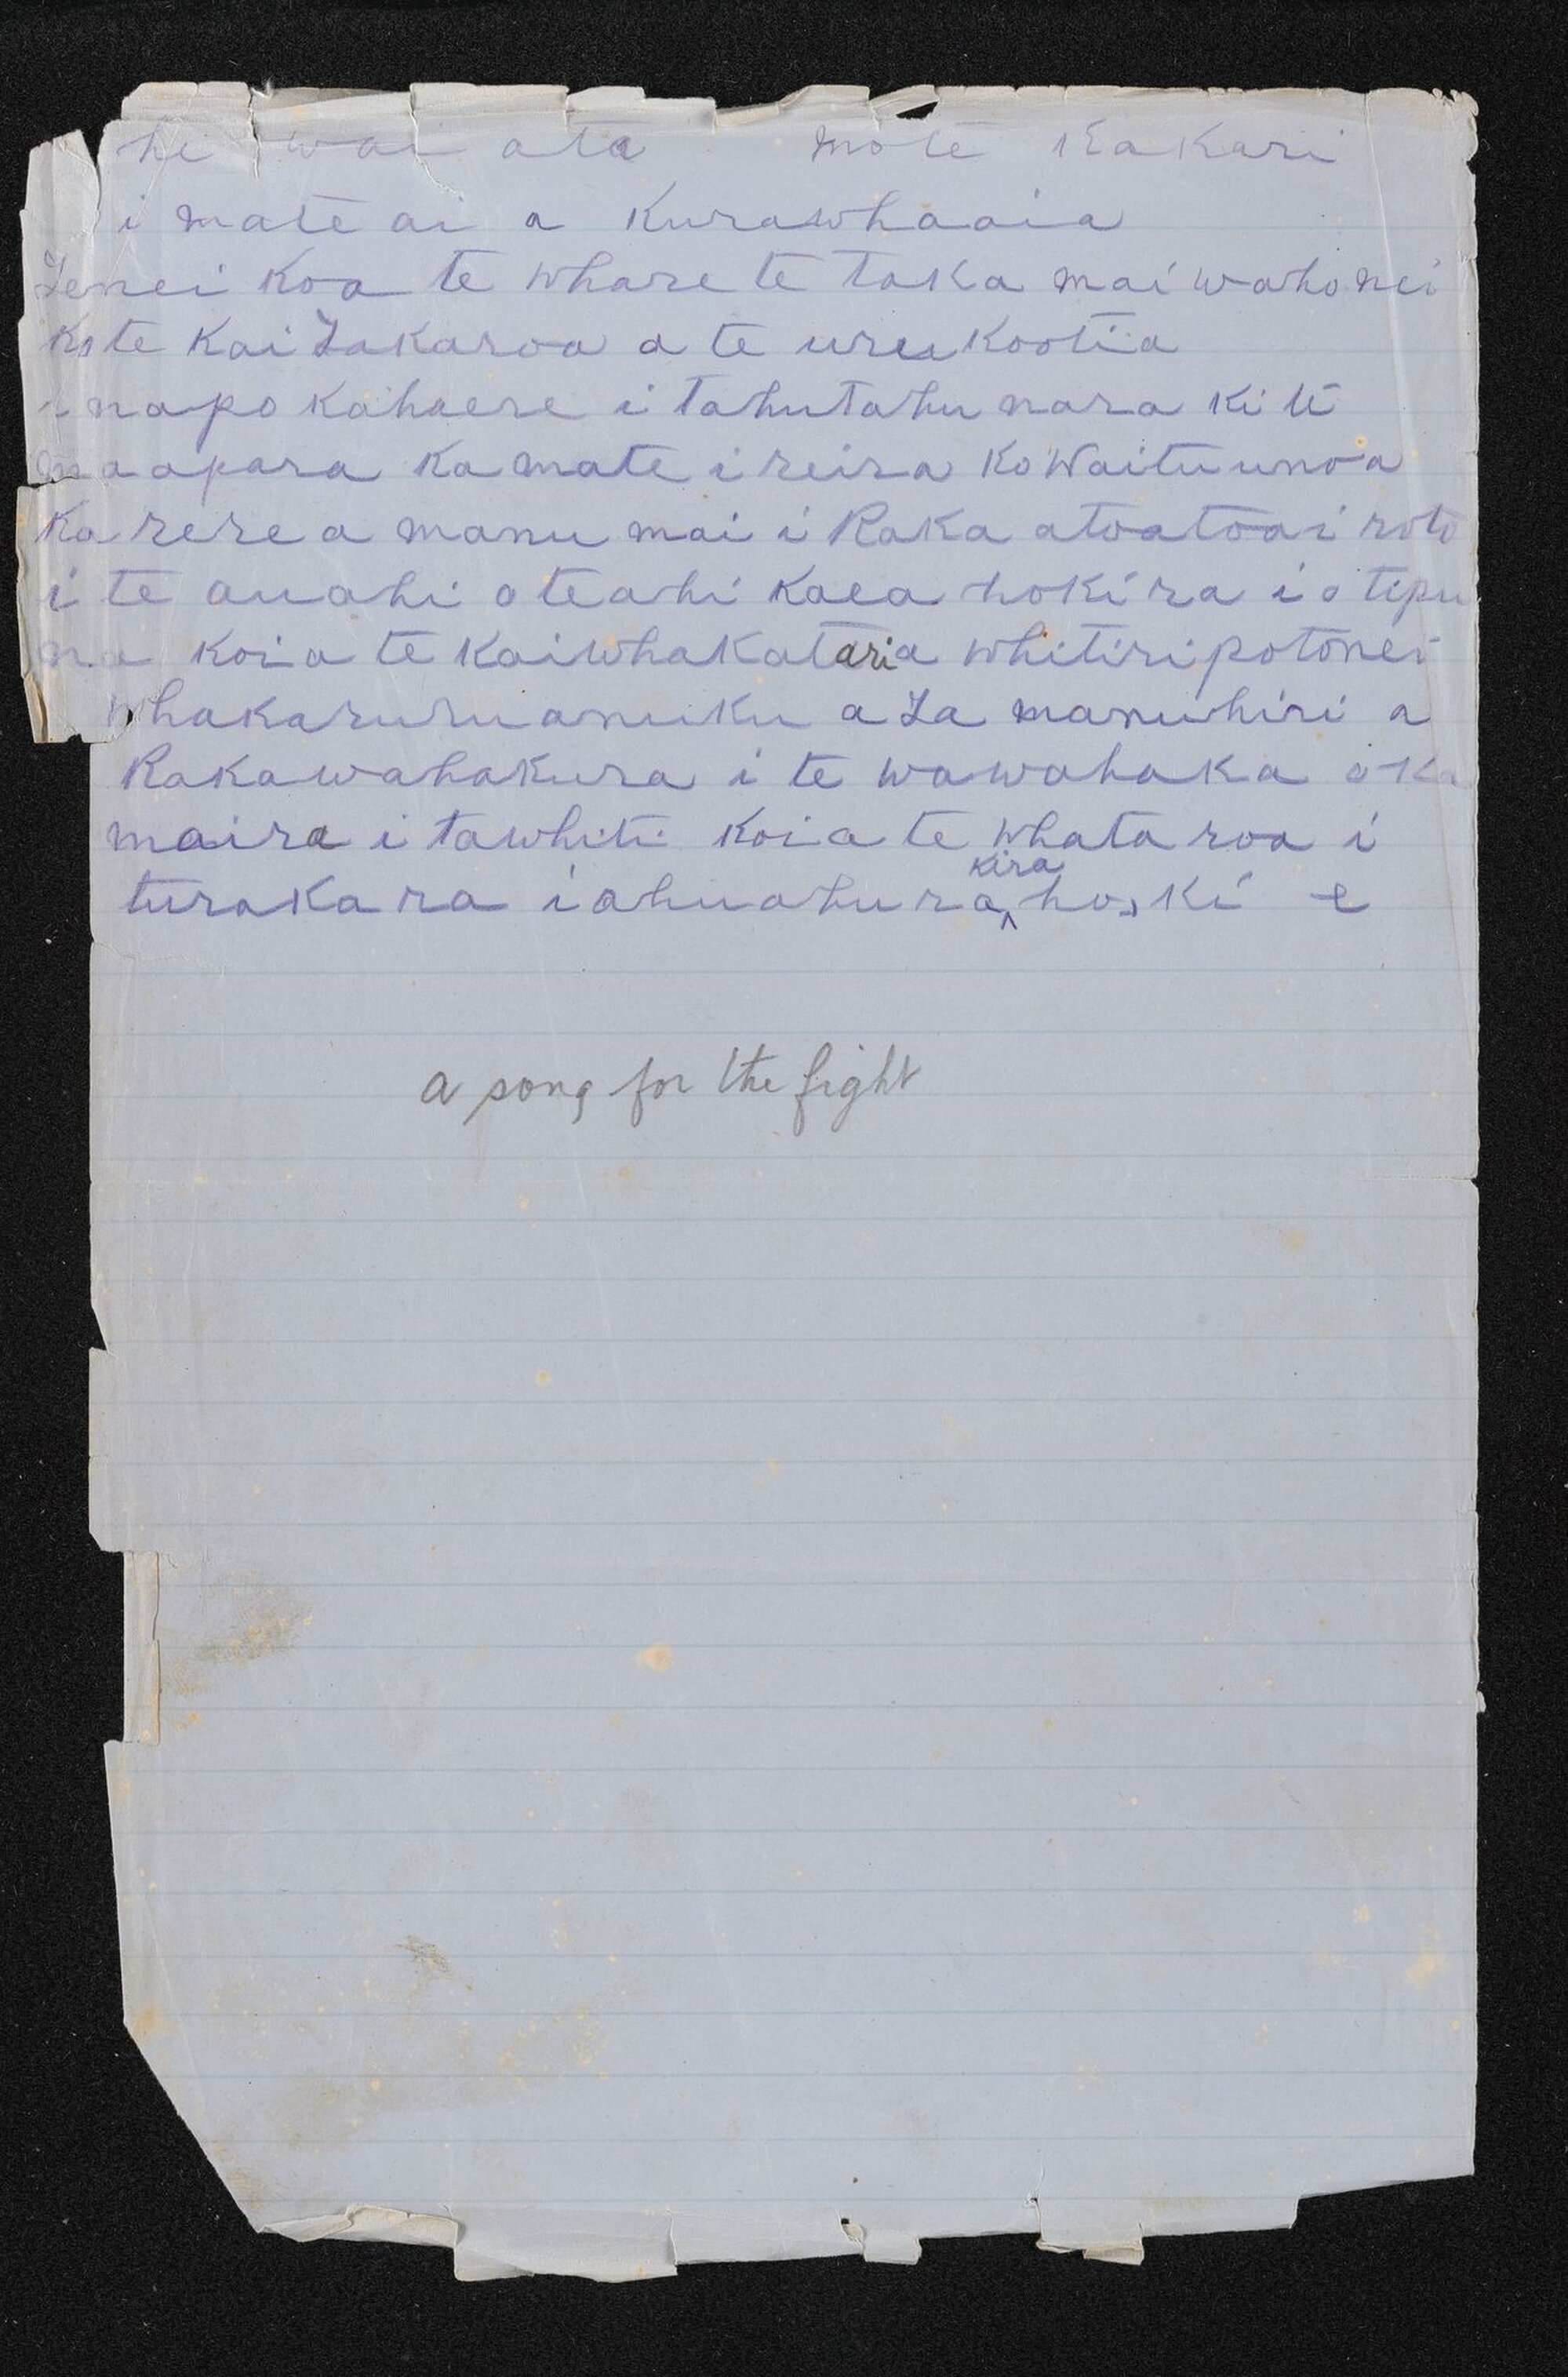 he wai ata mote Kakari
i mate ai a Kurawhaaia
Tenei koa te whare te taka mai waho nei
Kote Kai Takaroa a te uru Kootia
i napo kahaere i Tahutahu nara ki te
maapara ka mate i reira Ko Waituunoa
Ka rere a manu mai i Raka atoatoa i roto
i te auahi o teahi kaea hoki ra i o tipu
na koia te kaiwhakataria whitiri potonei
whakaruruanuku a Ta manuhiri a
Rakawahakura i te wawahaka o ka
maira i tawhiti koia te whata roa i
turakara i ahuahu ra kira hoki e
a song for the fight